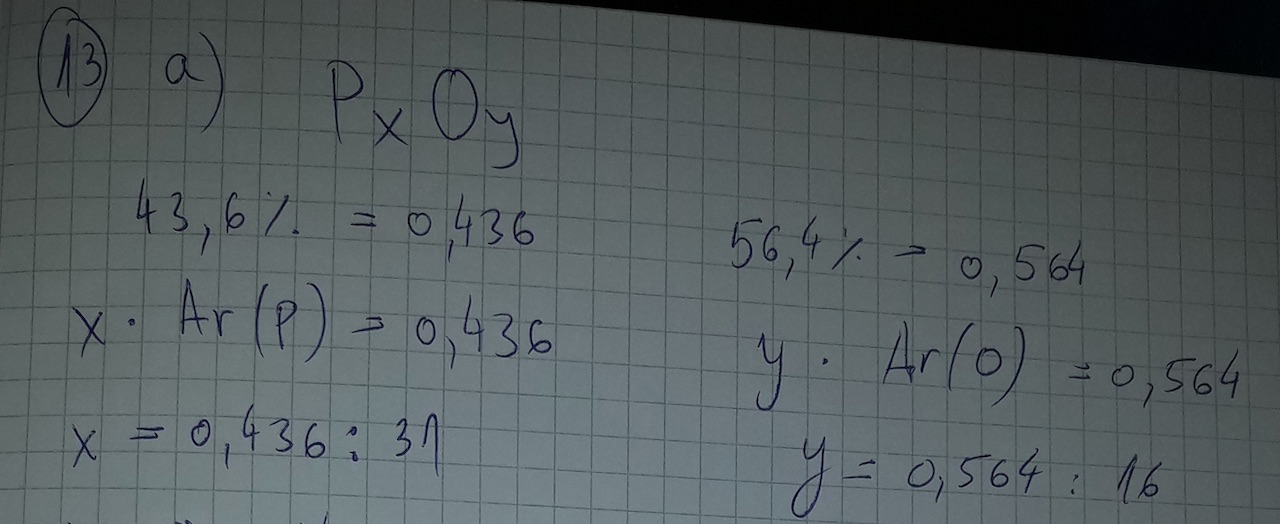 13 a) PxOy
43,6% = 0,436
56,4% = 0,564
x · Ar(P) = 0,436
y · Ar(O) = 0,564
x = 0,436 : 31
y = 0,564 : 16